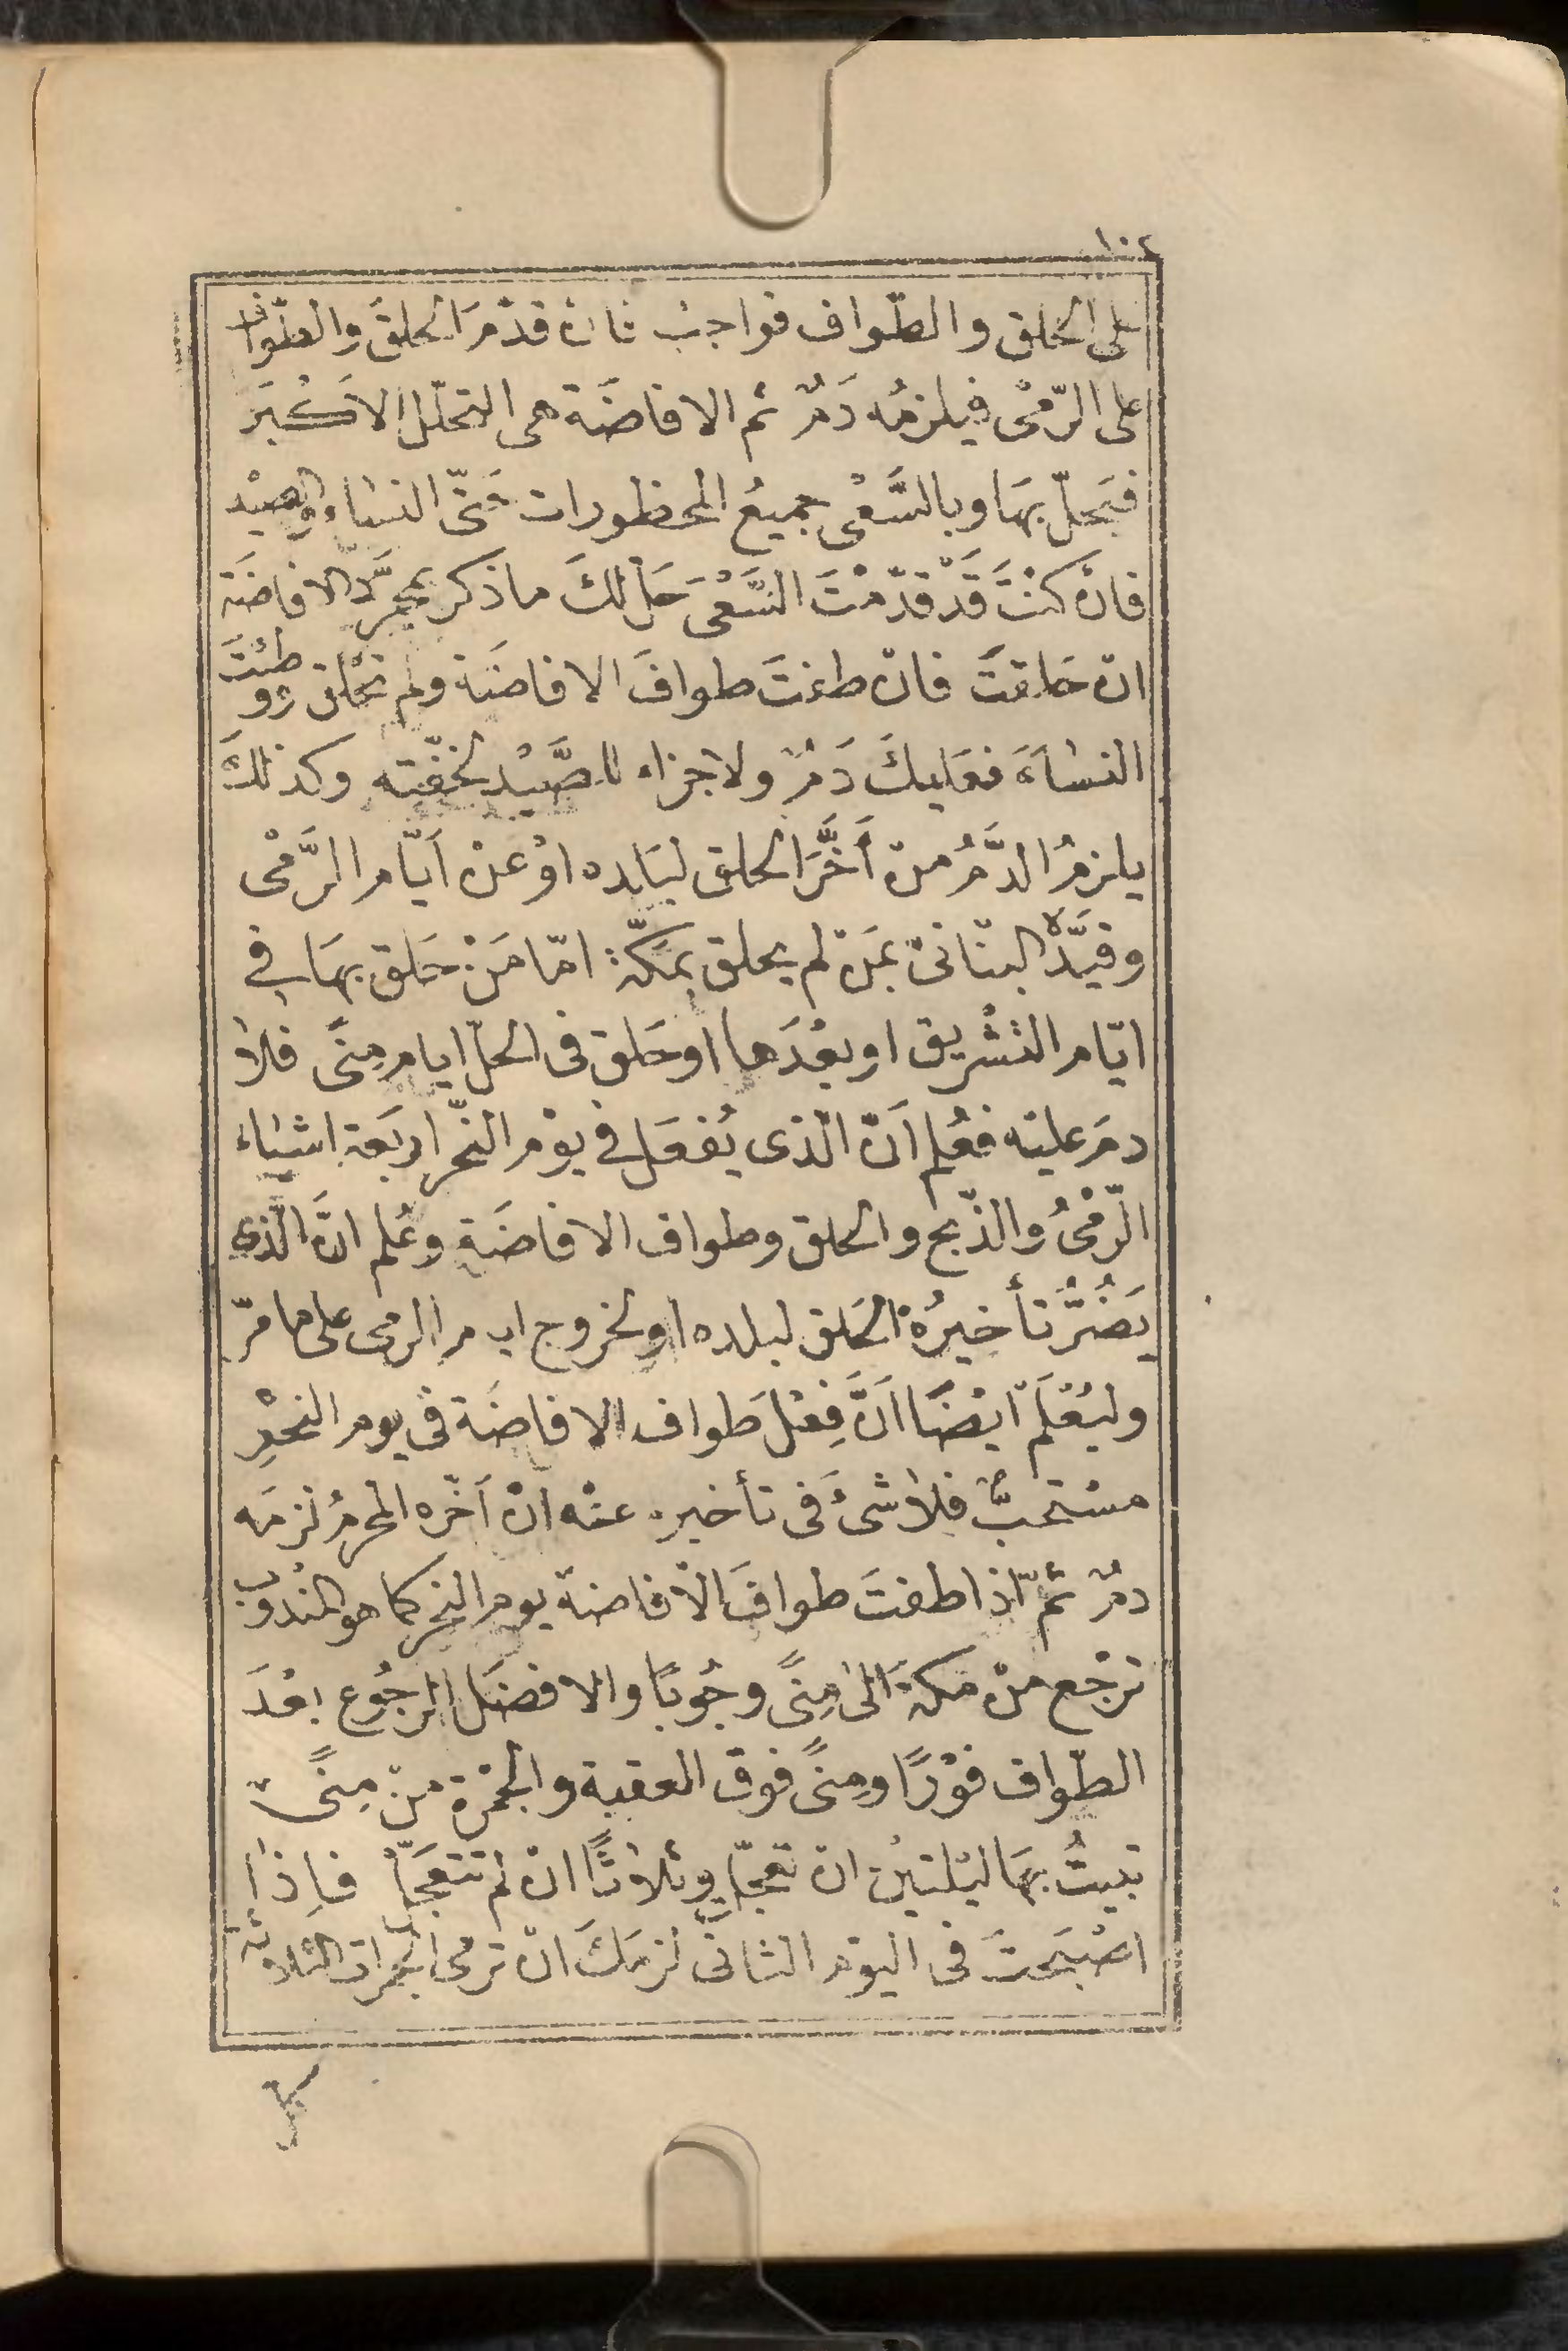 ١٠٤
على الحلق والطّواف فواجبٌ فانْ قدّمَ الحلقَ والطّوافَ
على الرّمْى فيلزمُه دَمٌ ثم الافاضَة هى التحلّل الاَكْبَر
فتحلّ بهَا وبالسَّعْى جميعُ المحظورات حَتّى النسَاء والصيْد
فانْ كنْتَ قَدْ قدّمْتَ السَّعْىَ حَلّ لكَ ما ذكر بمجرَّد الافاضَة
انْ حَلقتَ فانْ طفتَ طوافَ الافاضَة ولم تحْلق ووطئتَ
النسَآءَ فعَليكَ دَمٌ ولا جزاء للصَّيْد لخفّته وكذلكَ
يلزمُ الدَّمُ منْ أَخَّرَ الحلق لبَلده اوْ عنْ اَيّام الرَّمْى
وقيَّدْهُ البنّانىّ بمَنْ لم يحلق بمَكّة امّا مَنْ حَلق بهَا فى
ايّام التشْريق او بعْدَها او حَلق فى الحلّ ايام مِنًى فلا
دمَ عليْه فعُلم اَنّ الّذى يُفعَل فى يوْم النّحر اربَعة اشيَاء
الرّمْىُ والذّبح والحلق وطواف الافاضَة وعُلم انَّ الَّذى
يَضُرُّ تأخيرُهُ الحَلق لبلده او لخروج ايام الرمى على ما مرّ
وليُعْلَمْ ايْضًا اَنَّ فِعْلَ طواف الافاضَة فى يوم النحْرِ
مسْتحبٌّ فلا شىْءَ فى تأخيره عنْه انْ اَخّره المحرمُ لزمَه
دمٌ ثمّ اذا طفتَ طوافَ الافاضة يوم النحر كما هو المنْدُوب
ترْجع منْ مكةَ الىٰ مِنًى وجُوبًا والافضَل الرجُوع بعْدَ
الطّواف فوْرًا ومِنًى فوقَ العقبة والجمْرة منْ مِنًى
تبيتُ بهَا ليْلتيْن انْ تعجّل وثلاثًا انْ لم تتعجّل فاِذا
اصْبَحتَ فى اليوْم الثانىٰ لزمَكَ انْ ترمى الجمرات الثلاثة